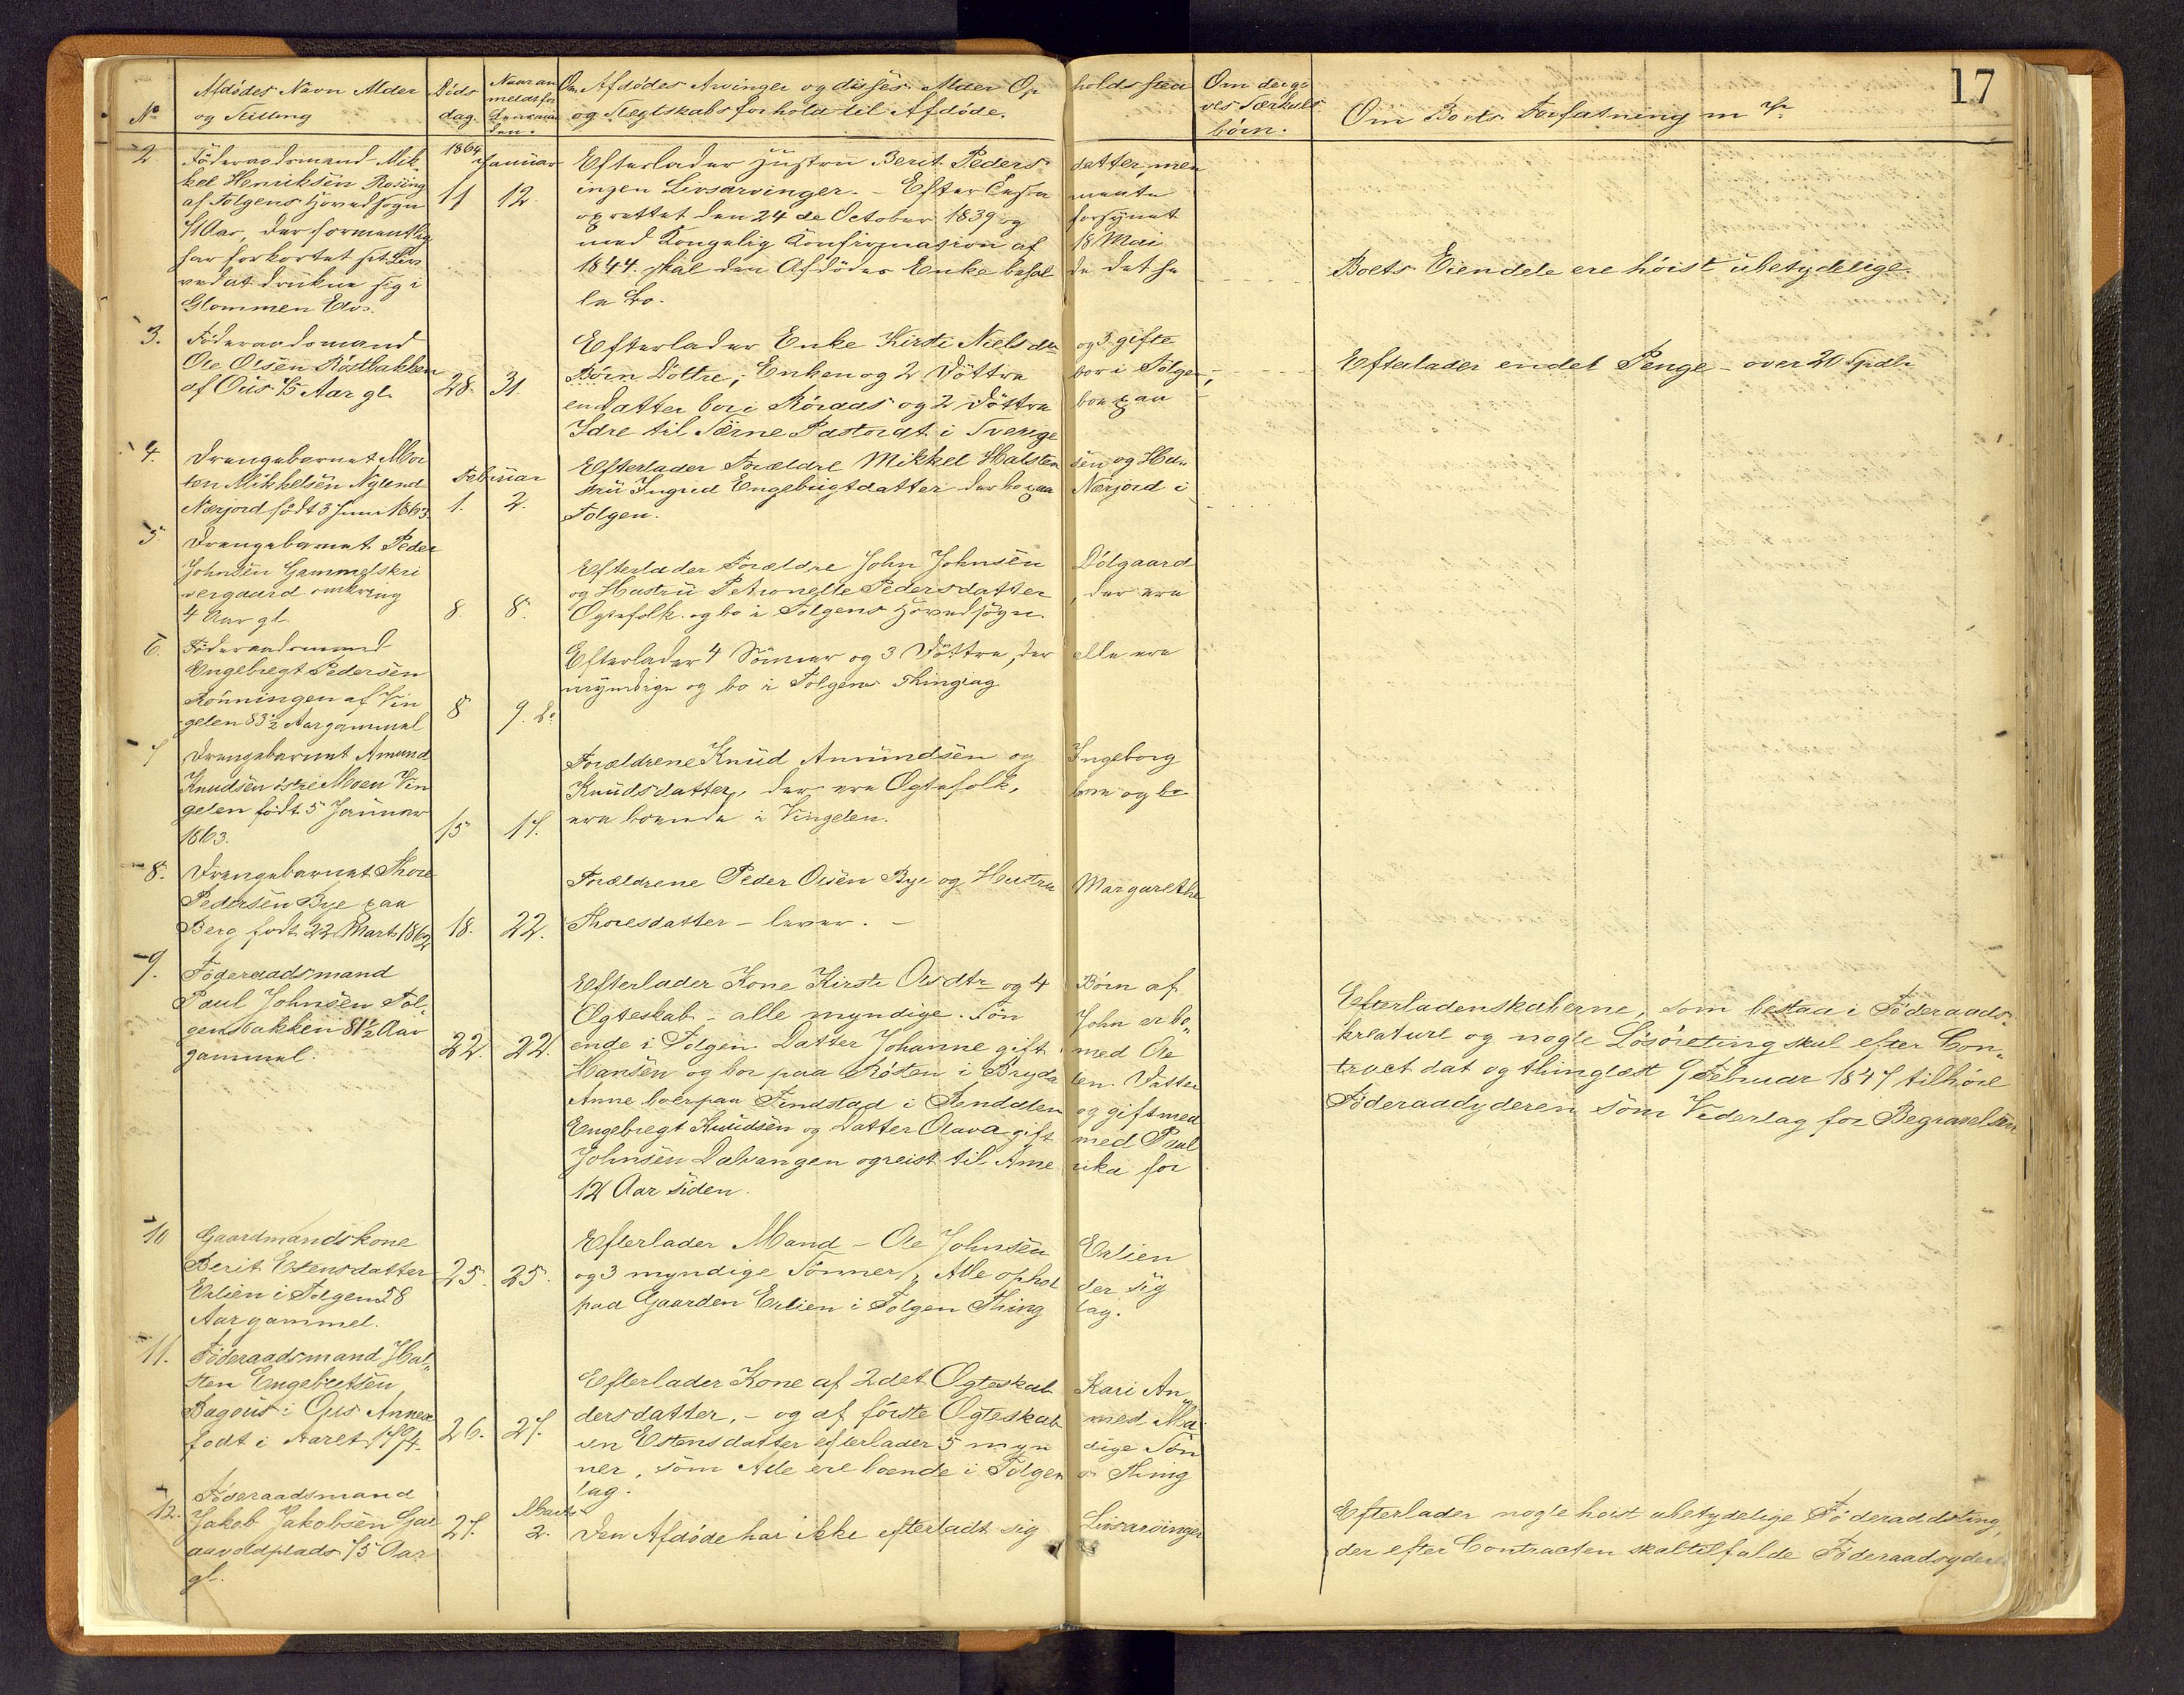 17
No
Afdödes Navn Alder
og Stilling
Döds
dag.
Naar an
meldt for
Lensman
den.
Om Afdödes Arvinger og disses Alder Op holdssted
og Slegtskabsforhold til Afdöde.
Om der gi
ves Særkuls
börn.
Om Boets Forfatning m. v.
2. Föderaadsmand Mik-
kel Henriksen Rosing
af Tolgens Hovedsogn
71 Aar, der formentlig
har forkortet sit Liv
ved at drukne sig i
Glommen Elv.
1864 Januar
11 12.
Efterlader Hustru Berit Peders datter, men
ingen Livsarvinger. – Efter Testa mente
oprettet den 24de October 1839 og forsynet
med Kongelig Konfirmation af 18 Mai
1844. skal den Afdödes Enke behol de det he
le Bo.
Boets Eiendele ere höist ubetydelige.
3. Föderaadsmand
Ole Olsen Röstbakken
af Öus 75 Aar gl.
28. 31.
Efterlader Enke Kirsti Nielsdtr og 5 gifte
Börn Döttre; Enken og 2 Döttre bor i Tolgen;
en datter bor i Röraas og 2 Döttre boe paa
Idre til Særne Pastorat i Sverige
Efterlader endel Penge – over 20 Spdlr
4. Drengebarnet Mor
ten Mikkelsen Nylend
Nærjord födt 3 Juni 1863.
Februar
1. 2.
Efterlader Forældre Mikkel Halsten sen og Hu-
stru Ingrid Engebrigtdatter der bo paa Nærjord i
Tolgen.
5. Drengebarnet Peder
Johnsen Gammelskri
vergaard omkring
4 Aar gl.
8. 8.
Efterlader Forældre John Johnsen Dölgaard
og Hustru Petronelle Pedersdatter, der ere
Ögtefolk og bo i Tolgens Hovedsogn.
6. Föderaadsmand
Engebregt Pedersen
Rönningen af Vin
gelen 83½ Aar gammel
8 9. do
Efterlader 4 Sönner og 3 Döttre, der alle ere
myndige og bo i Tolgens Thinglag
7 Drengebarnet Amund
Knudsen östre Moen Vin
gelen födt 5 Januar
1863.
15 17.
Forældrene Knud Amundsen og Ingeborg
Knudsdatter, der ere Ögtefolk, bore og bo
ere boende i Vingelen.
8. Drengebarnet Thore
Pedersen Bye paa
Berg födt 22 Marts 1862
18. 22.
Forældrene Peder Olsen Bye og Hustru Margarethe
Thoresdatter – lever. –
9. Föderaadsmand
Paul Johnsen Tol-
gensbakken 81½ Aar
gammel.
22. 22.
Efterlader Kone Kirsti Olsdtr og 4 Börn af
Ögteskab – alle myndige. Sön John er bo-
ende i Tolgen. Datter Johanne gift med Ole
Hansen og bor paa Rösten i Bryda len. Datter
Anne boer paa Findstad i Rendalen og gift med
Engebregt Knudsen og Datter Olava gift med Paul
Johnsen Dalvangen og reist til Ame rika for
12 Aar siden.
Efterladenskaberne, som bestaa i Föderaads-
kreature og nogle Lösöreting skal efter Con-
tract dat og thinglæst 9 Februar 1847 tilhöre
Föderaadyderen som Vederlag for Begravelsen
10 Gaardmandskone
Berit Estensdatter
Erlien i Tolgen 58
Aar gammel.
25. 25.
Efterlader Mand – Ole Johnsen Erlien
og 3 myndige Sönner, Alle ophol der sig
paa Gaarden Erlien i Tolgen Thing lag.
11. Föderaadsmand Hal-
sten Engebretsen
Bagöus i Öus Annex
födt i Aaret 1774.
26. 27.
Efterlader Kone af 2det Ögteskab Kari An
dersdatter, – og af förste Ögteskab med Ma-
ren Estensdatter efterlader 5 myn dige Sön
ner, som Alle ere boende i Tolgen s Thing
lag.
12. Föderaadsmand
Jakob Jakobsen Gar
aavoldplads 75 Aar
gl.
27. Marts 2.
Den Afdöde har ikke efterladt sig Livsarvinger
Efterlader nogle höist ubetydelige Föderaadsting,
der efter Contracten skal tilfalde Föderaadsyderen